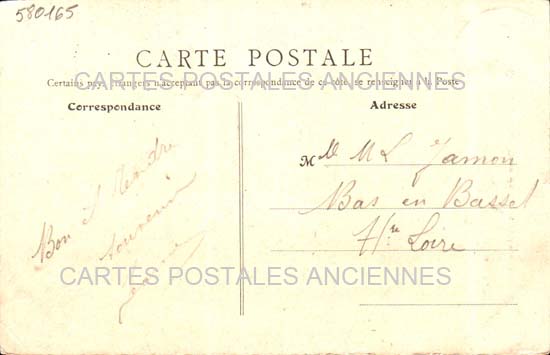 580165
CARTE POSTALE
Certains pays étrangers n'acceptant pas la correspondance de ce côté, se renseigner à la Poste
CARTES POSTALES ANCIENNES
Correspondance
Bon et tendre
souvenir
Adresse
M lle M L Jamon
Bas en Basset
Hte Loire
CARTES POSTALES ANCIENNES